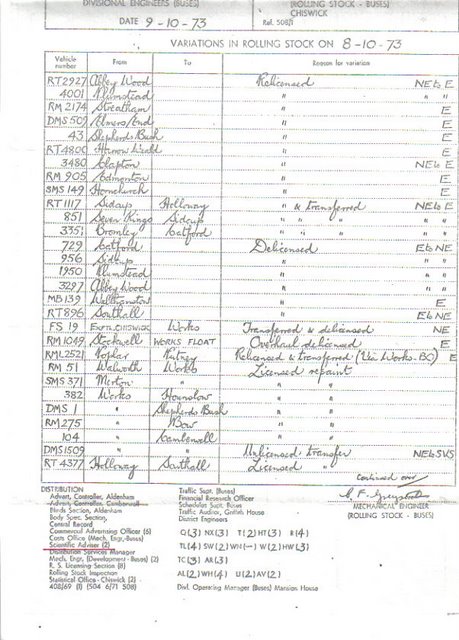 DIVISIONAL ENGINEERS (BUSES) (ROLLING STOCK - BUSES)
CHISWICK
DATE 9-10-73 Ref. 508/1
VARIATIONS IN ROLLING STOCK ON 8-10-73
Vehicle number From To Reason for variation
RT 2927 Abbey Wood Relicensed NE to E
4001 Plumstead " " "
RM 2174 Streatham " E
DMS 509 Elmers/End " E
43 Shepherds Bush " E
RT 4806 Harrow Weald " E
3480 Clapton " NE to E
RM 905 Edmonton " E
SMS 149 Hornchurch " E
RT 1117 Sidcup Holloway " & transferred NE to E
851 Seven Kings Sidcup " " " " "
3351 Bromley Catford " " " " "
729 Catford Delicensed E to NE
956 Sidcup " " "
1950 Plumstead " " "
3297 Abbey Wood " " "
MB 139 Walthamstow " E
RT 896 Southall " E to NE
FS 19 CHISWICK Works Transferred & delicensed NE
RM 1049 Stockwell WORKS FLOAT Overhaul delicensed E
RML 2521 Poplar Putney Relicensed & transferred (Via Works. BO) E
RM 51 Walworth Works Licensed repaint
SMS 371 Merton " " "
382 Works Hounslow " "
DMS 1 " Shepherds Bush " "
RM 275 " Bow " "
104 " Camberwell " "
DMS 1509 " " Unlicensed transfer NE to SVS
RT 4377 Holloway Southall Licensed "
continued over
DISTRIBUTION
Advert. Controller, Aldenham
Advert. Controller, Camberwell
Blinds Section, Aldenham
Body Spec. Section,
Central Record
Commercial Advertising Officer (6)
Costs Office (Mech. Engr.-Buses)
Scientific Adviser (2)
Distribution Services Manager
Mech. Engr. (Development - Buses) (2)
R. S. Licensing Section (8)
Rolling Stock Inspection
Statistical Office - Chiswick (2)
408/69 (1) (504 6/71 508)
Traffic Supt. (Buses)
Financial Research Officer
Schedules Supt. Buses
Traffic Auditor, Griffith House
District Engineers
Q(3) NX(3) T(2) HT(3) R(4)
TL(4) SW(2) WN(-) W(2) HW(3)
TC(3) AR(3)
AL(2) WH(4) U(2) AV(2)
Divl. Operating Manager (Buses) Mansion House
MECHANICAL ENGINEER
(ROLLING STOCK - BUSES)